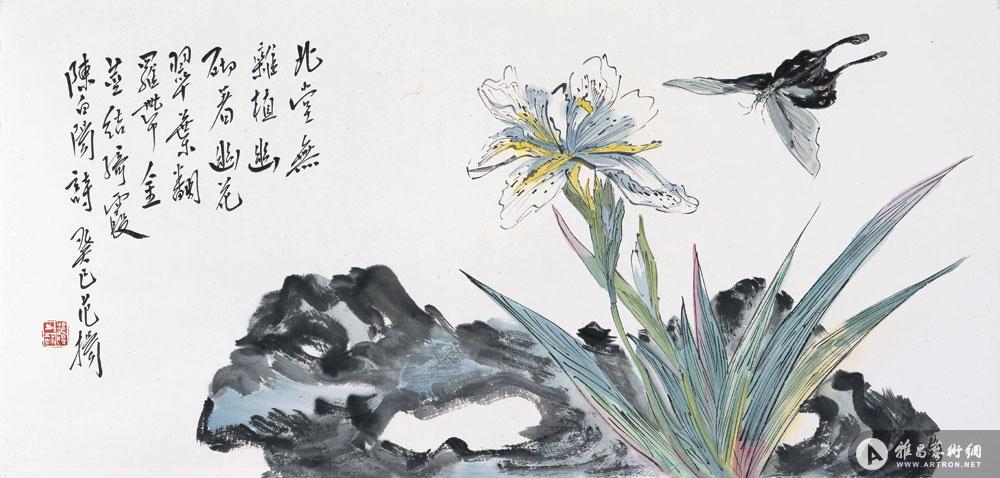 北堂無
雜植幽
砌看幽花
翠葉翻
羅帶金
莖結綺霞
陳白陽詩 癸巳范揚
雅昌藝術網
WWW.ARTRON.NET